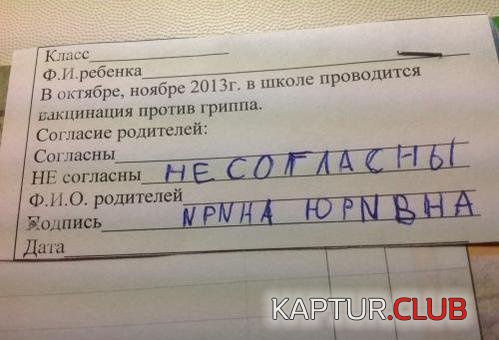 Класс
Ф.И.ребенка
В октябре, ноябре 2013г. в школе проводится
вакцинация против гриппа.
Согласие родителей:
Согласны
НЕ согласны НЕСОГЛАСНЫ
Ф.И.О. родителей
Подпись NPNНА ЮРNВНА
Дата
KAPTUR.CLUB